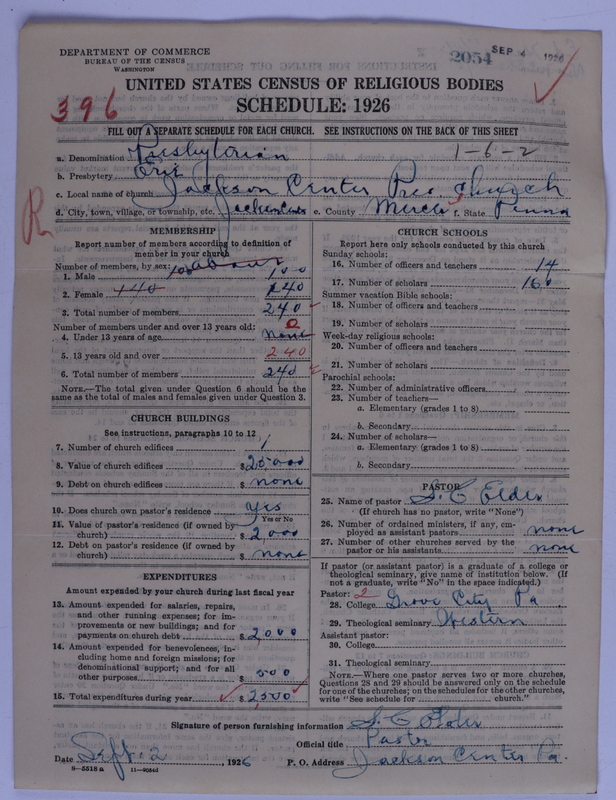 DEPARTMENT OF COMMERCE
BUREAU OF THE CENSUS
WASHINGTON
2054 SEP 4 1926
UNITED STATES CENSUS OF RELIGIOUS BODIES
SCHEDULE: 1926
396
FILL OUT A SEPARATE SCHEDULE FOR EACH CHURCH. SEE INSTRUCTIONS ON THE BACK OF THIS SHEET
a. Denomination Presbyterian 1-6-2
b. Presbytery Erie
c. Local name of church Jackson Center Pres church
d. City, town, village, or township, etc. Jackson Center e. County Mercer f. State Penna
R
MEMBERSHIP
Report number of members according to definition of member in your church
Number of members, by sex: about
1. Male 100 100
2. Female 140 140
3. Total number of members 240
Number of members under and over 13 years old:
4. Under 13 years of age none 0
5. 13 years old and over 240
6. Total number of members 240
NOTE.—The total given under Question 6 should be the
same as the total of males and females given under Question 3.
CHURCH BUILDINGS
See instructions, paragraphs 10 to 12
7. Number of church edifices 1
8. Value of church edifices $25000
9. Debt on church edifices $none
10. Does church own pastor's residence yes
Yes or No
11. Value of pastor's residence (if owned by
church) $2000
12. Debt on pastor's residence (if owned by
church) $none
EXPENDITURES
Amount expended by your church during last fiscal year
13. Amount expended for salaries, repairs,
and other running expenses; for im-
provements or new buildings; and for
payments on church debt $2000
14. Amount expended for benevolences, in-
cluding home and foreign missions; for
denominational support; and for all
other purposes $500
15. Total expenditures during year $2,500
CHURCH SCHOOLS
Report here only schools conducted by this church
Sunday schools:
16. Number of officers and teachers 14
17. Number of scholars 160
Summer vacation Bible schools:
18. Number of officers and teachers
19. Number of scholars
Week-day religious schools:
20. Number of officers and teachers
21. Number of scholars
Parochial schools:
22. Number of administrative officers
23. Number of teachers—
a. Elementary (grades 1 to 8)
b. Secondary
24. Number of scholars—
a. Elementary (grades 1 to 8)
b. Secondary
PASTOR
25. Name of pastor S. C. Elder
(If church has no pastor, write "None")
26. Number of ordained ministers, if any, em-
ployed as assistant pastors none
27. Number of other churches served by the
pastor or his assistants none
If pastor (or assistant pastor) is a graduate of a college or
theological seminary, give name of institution below. (If
not a graduate, write "No" in the space indicated.)
Pastor: 2
28. College Grove City Pa
29. Theological seminary Western
Assistant pastor:
30. College
31. Theological seminary
NOTE.—Where one pastor serves two or more churches,
Questions 28 and 29 should be answered only on the schedule
for one of the churches; on the schedules for the other churches,
write "See schedule for church."
Signature of person furnishing information S. C. Elder
Official title Pastor
Date Sept. 2, 1926 P. O. Address Jackson Center Pa.
8-5518 a 11-9084d